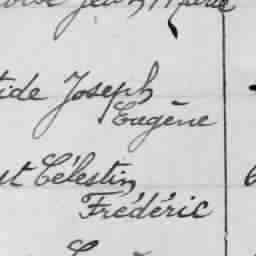 Jean Marie
ide Joseph
Eugène
st Célestin
Frédéric